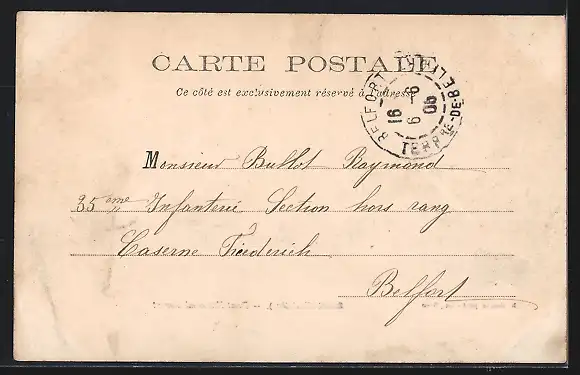 CARTE POSTALE
Ce côté est exclusivement réservé à l'adresse
BELFORT
16 6 - 6 06
Monsieur Bullot Raymond
35 ème Infanterie Section hors rang
Caserne Friederich
Belfort